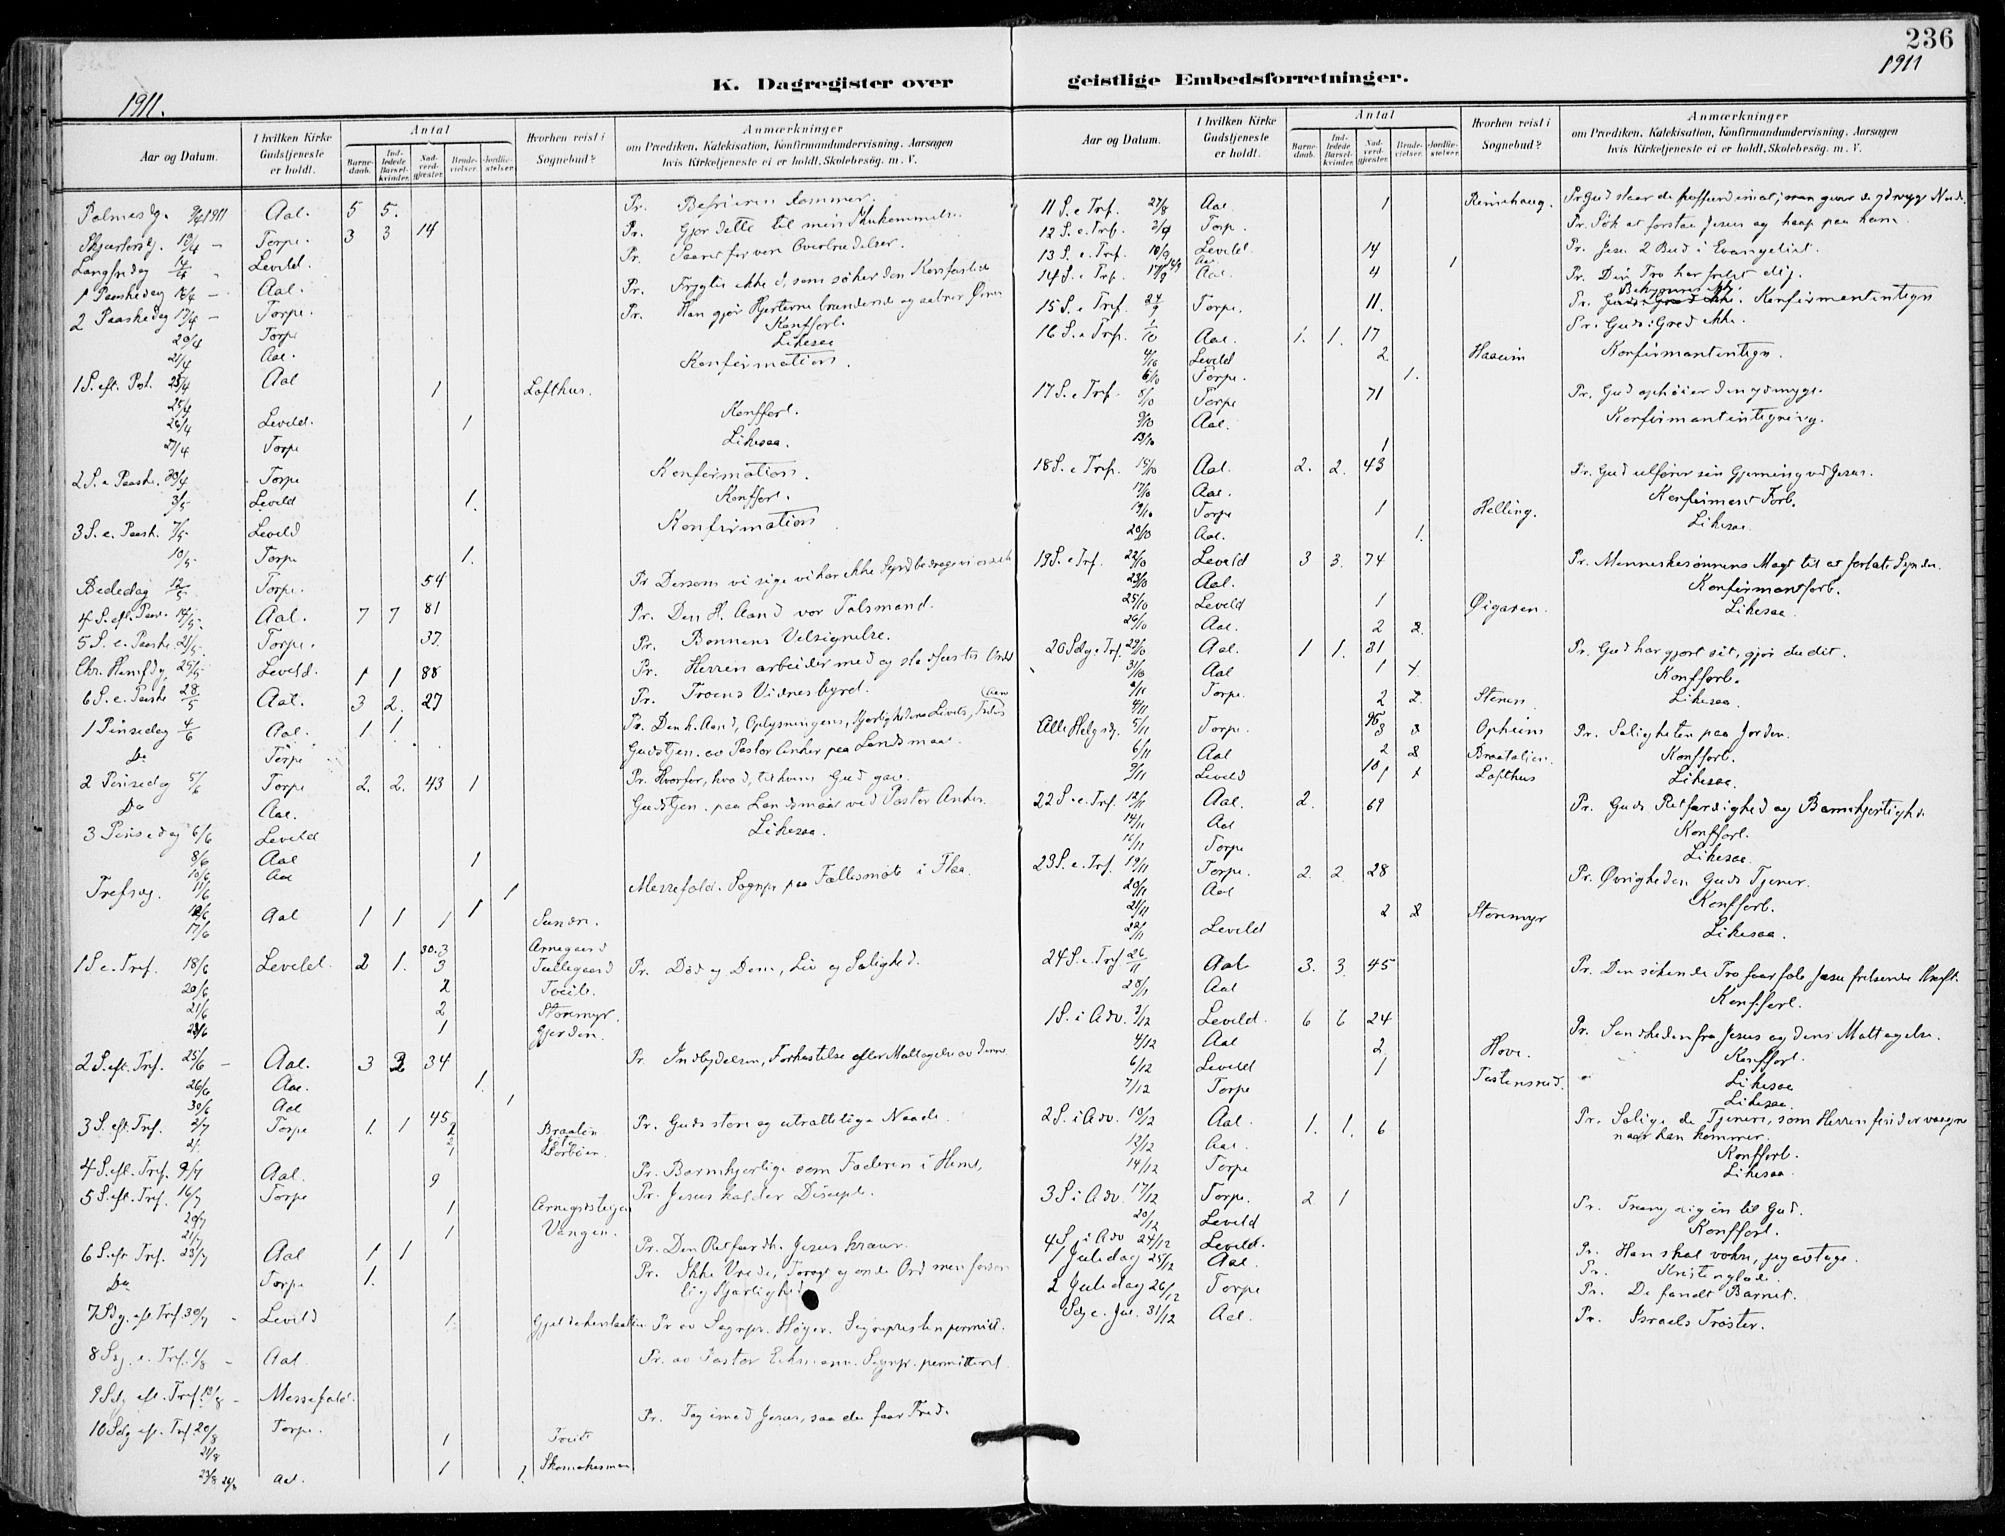 236
1911.
1911
K. Dagregister over geistlige Embedsforretninger.
Aar og Datum. I hvilken Kirke Gudstjeneste er holdt. Antal Barnedaab. Indledede Barselkvinder. Nadverdgjæster. Brudevielser. Jordfæstelser. Hvorhen reist i Sognebud? Anmærkninger om Prædiken, Katekisation, Konfirmandundervisning. Aarsagen hvis Kirketjeneste ei er holdt. Skolebesög. m. V.
Palmesdg. 9/4 1911 Aal. 5 5. Pr. Befrieren kommer.
Skjærtorsdg. 13/4 – Torpe. 3 3 14 Pr. Gjør dette til min Ihukommelse.
Langfredag 14/4 Leveld. Pr. Saaret for vore Overtrædelser.
1 Paaskedag 16/4 – Aal. Pr. Frygter ikke I, som søker den Korsfæstede
2 Paaskedag 17/4 – Torpe. Pr. Han gjør Hjerterne brændende og aabner Øinene
20/4 Torpe Konfforb.
21/4 Aal. Likesaa
1 S. eft. Paa. 23/4 Aal Konfirmation.
25/4 1 Lofthus.
26/4 Leveld. 1 Konfforb.
27/4 Torpe Likesaa.
2 S. e Paaske. 30/4 Torpe Konfirmation.
3/5 Leveld 1. Konfforb.
3 S. e. Paask. 7/5 Leveld Konfirmation
10/5 Torpe 1.
Bededag 12/5 Torpe. 54 Pr Dersom vi sige vi har ikke Synd bedrage vi os selv
4 S. eft. Paas. 14/5 Aal. 7 7 81 Pr. Den H. Aand vor Talsmand.
5 S. e. Paaske 21/5 Torpe. 37 Pr. Bønnens Velsignelse.
Chr. Himfdg. 25/5 Leveld. 1 1 88 Pr. Herren arbeider med og stadfæster Ordet
6 S. e. Paaske 28/5 Aal. 3 2. 27 Pr. Troens Vidnesbyrd.
1 Pinsedag 4/6 Aal. 1 1 Pr. Den h. Aand, Oplysningens, Kjærlighedens Levets, Fredens Aand
Do Torpe Gudstjen. av Pastor Anker paa Landsmaal.
2 Pinsedag 5/6 Torpe 2. 2. 43 1 Pr. Hvorfor, hvad, til hvem Gud gav.
Do Aal. Gudstjen. paa Landsmaal ved Pastor Anker.
3 Pinsedag 6/6 Leveld Likesaa.
8/6 Aal 1
10/6 Aal
Trefsdg. 11/6 1 Messefald. Sognepr paa Fællesmøte i Flaa.
12/6 Aal 1 1 1 1 Sundre.
17/6 Arnegaard
1 S e. Tref. 18/6 Leveld. 2 1. 30. 3 3 Tullegaard Pr. Død og Dom, Liv og Salighed.
20/6 2 Tveito.
21/6 2 Storemyr.
23/6 1 Gjerden.
2 S. eft. Tref. 25/6 – Aal. 3 3 34 Pr. Indbydelsen, Forkastelse eller Mottagelse av denne
26/6 Aal. 1
30/6 Aal 1
3 S. eft. Tref. 2/7 Torpe 1. 1 45 Braaten Pr. Guds store og utrættelige Naade.
4 S. eft. Tref. 9/7 Aal. 9 Pr. Barmhjertige som Faderen i Himl.
5 S. eft. Tref. 16/7 Torpe Pr. Jesus kalder Disciple.
20/7 1
21/7 1 Vangen.
6 S. eft Tref. 23/7 Aal 1 1 Pr. Den Retfærdh. Jesus kræver.
Do Torpe 1. Pr. Ikke Vrede, Torost og onde Ord men forsonlig Kjærlighed
7 Sdg. eft Tref. 30/7 – Leveld 1. Pr av Sognepr. Høyer. Sognepresten permitt.
8 Sdg. e. Tref. 6/8 – Aal. Pr. av Pastor Eckmann. Sognpr. permitteret.
9 Sdg eft. Tref. 13/8 – Messefald.
10 Sdg eft. Tref. 20/8 Torpe. Pr. Tag imod Jesus, saa du faar Fred.
21/8 1 Tveito
23/8 26/8 Aal. 1 1. Skomakermoen
Aar og Datum. I hvilken Kirke Gudstjeneste er holdt. Antal Barnedaab. Indledede Barselkvinder. Nadverdgjæster. Brudevielser. Jordfæstelser. Hvorhen reist i Sognebud? Anmærkninger om Prædiken, Katekisation, Konfirmandundervisning. Aarsagen hvis Kirketjeneste ei er holdt. Skolebesög. m. V.
11 S. e Tref. 27/8 Aal 1 Reinshaug. Pr Gud staar de hoffærdige imot; man giver de ydmyge Naade.
12 S. e. Tref. 3/9 Torp. Pr. Søk at forstaa Jesus og haap paa ham.
13 S. e. Tref. 10/9 Leveld 14 Pr. Jesu 2 Bud i Evangeliet.
14 S. e Tref. 17/9 Aal. 4 1 Pr. Din Tro har frelst dig.
15 S. e Tref. 24/9 Torpe. 11. Pr. Bekymrer ikke. Konfirmantintegn
16 S. e Tref. 1/10 Aal. 1. 1. 17 Pr. Guds: Græd ikke.
4/10 Leveld 2. Haaeim Konfirmantintegn.
6/10 Torpe. 1.
17 S. e Tref. 8/10 Torpe 71 Pr. Gud ophøier den ydmyge.
9/10 Aal. Konfirmantintegning.
13/10 1
18 S. e Tref. 15/10 Aal. 2. 2. 43 Pr. Gud utfører sin Gjerning ved Jesus.
17/10 Aal. Konfirmant Forb.
19/10 Torpe 1 Helling. Likesaa.
20/10 Aal. 1.
19 S. e Tref. 22/10 Leveld 3 3. 74 Pr. Menneskesønnens Magt til at forlate Synder.
23/10 Aal. Konfirmantforb.
25/10 Leveld 1 Øigaren. Likesaa.
26/10 Aal. 2 2.
20 Sdg. e Tref. 29/10 Aal. 1 1. 31 Pr. Gud har gjort sit, gjør du dit.
31/10 Aal 1 Konfforb.
2/11 Torpe. 2 Stenes. Likesaa.
4/11
Alle Helgsdg. 5/11 Torpe. 95 3 Opheim Pr. Saligheten paa Jorden.
6/11 Aal 2 Braatalien. Konfforb.
9/11 Leveld 10 1 Lofthus Likesaa.
22 S. e. Tref. 12/11 Aal. 2. 69 Pr. Guds Retfærdighed og Barmhjertighed.
14/11 Aal Konfforb.
16/11 Torpe Likesaa.
23 S. e. Tref. 19/11 Torpe. 2. 2. 28 Pr. Øvrigheden Guds Tjener.
20/11 Aal Konfforb.
21/11 2 Storemyr
22/11 Leveld Likesaa.
24 S. e Tref 26/11 Aal 3. 3. 45 Pr. Den søkende Tro faar føle Jesu frelsende Kraft.
28/11 Aal Konfforb.
1 S. i Adv. 3/12 Leveld. 6 6 24 Pr. Sandheden fra Jesus og dens Mottagelse.
4/12 Aal 2 Hove. Konfforb.
6/12 Leveld 1 Tostensrud. Likesaa
7/12 Torpe Likesaa.
2 S. i Adv. 10/12 Aal. 1. 1. 6 Pr. Salige de Tjenere, som Herren finder vaagne
naar han kommer.
12/12 Aal. Konfforb.
14/12 Torpe Likesaa.
3 S i Adv. 17/12 Torpe. 2 1 Pr. Træng dig ind til Gud.
20/12 Leveld Konfforb.
4 S. i Adv 24/12 Leveld. Pr. Han skal vokse, jeg avtage.
1 Juledag 25/12 Aal. Pr. Kristenglæde.
2 Juledag 26/12 Torpe Pr. De fandt Barnet.
Sdg e. Jul. 31/12 Aal. Pr. Israels Trøster.